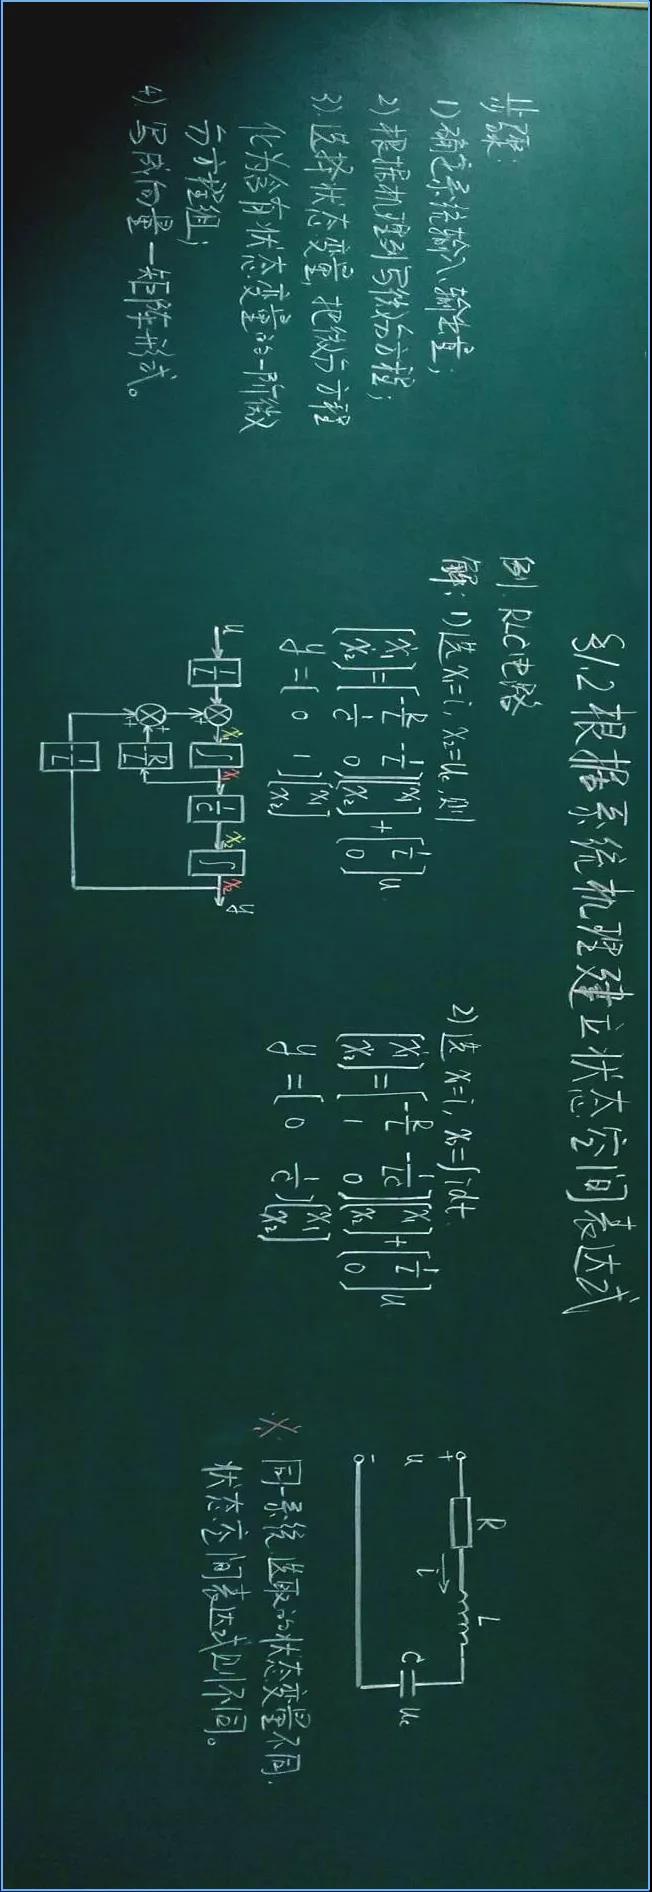 §1.2 根据系统机理建立状态空间表达式
步骤:
1) 确定系统输入输出量;
2) 根据机理列写微分方程;
3) 选择状态变量, 把微分方程
化为含有状态变量的一阶微
分方程组;
4) 写成向量-矩阵形式。
例: RLC电路
解: 1) 选 x₁=i, x₂=u_c, 则
[ẋ₁ ẋ₂] = [-R/L -1/L; 1/C 0][x₁ x₂] + [1/L 0]u
y = [0 1][x₁ x₂]
u 1/L + ẋ₁ ∫ x₁ 1/C ẋ₂ ∫ x₂ y
+ + -R/L
-1/L
2) 选 x₁=i, x₂=∫idt.
[ẋ₁ ẋ₂] = [-R/L -1/LC; 1 0][x₁ x₂] + [1/L 0]u
y = [0 1/C][x₁ x₂]
+ R L
u i C u_c
-
※ 同一系统, 选取的状态变量不同,
状态空间表达式则不同。